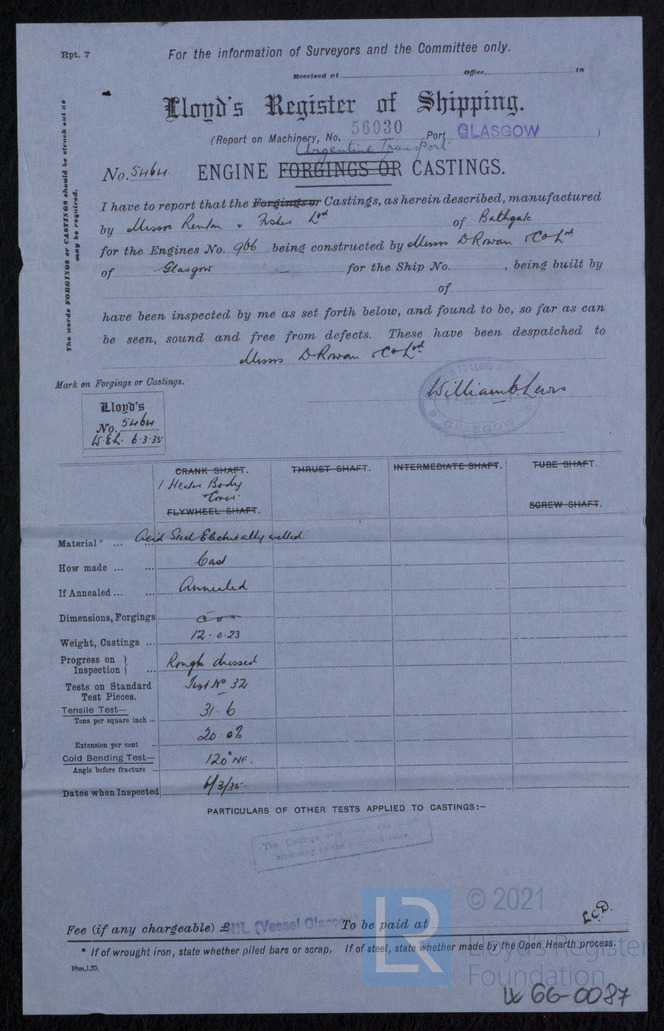 Rpt. 7
For the information of Surveyors and the Committee only.
Received at Office, 19
Lloyd's Register of Shipping.
(Report on Machinery, No. 56030 Port GLASGOW )
Argentine Transport
No. 5464. ENGINE FORGINGS OR CASTINGS.
The words FORGINGS or CASTINGS should be struck out as
may be required.
I have to report that the Forgings or Castings, as herein described, manufactured
by Messrs Renton & Fisher Ltd of Bathgate
for the Engines No. 966 being constructed by Messrs D Rowan & Co Ltd
of Glasgow for the Ship No. , being built by
of
have been inspected by me as set forth below, and found to be, so far as can
be seen, sound and free from defects. These have been despatched to
Messrs D Rowan & Co Ltd
Mark on Forgings or Castings.
William E. Lewis
GLASGOW
Lloyd's
No. 5464
W.E.L. 6.3.35
CRANK SHAFT. THRUST SHAFT. INTERMEDIATE SHAFT. TUBE SHAFT.
1 Heater Body
& Cover
FLYWHEEL SHAFT. SCREW SHAFT.
Material * ... ... Acid Steel Electrically melted.
How made ... ... Cast
If Annealed ... ... Annealed
Dimensions, Forgings
Weight, Castings ... 12.0.23
Progress on Inspection } ... Rough dressed
Tests on Standard Test Pieces. Test No 32
Tensile Test— Tons per square inch ... 31.6
Extension per cent ... 20.0%
Cold Bending Test— Angle before fracture ... 120° NF.
Dates when Inspected 6/3/35
PARTICULARS OF OTHER TESTS APPLIED TO CASTINGS:—
The Castings were
according to the
Fee (if any chargeable) £ NIL (Vessel Glasgow) To be paid at L.C.D.
* If of wrought iron, state whether piled bars or scrap. If of steel, state whether made by the Open Hearth process.
© 2021
LR
Lloyd's Register
Foundation
W 66-0087